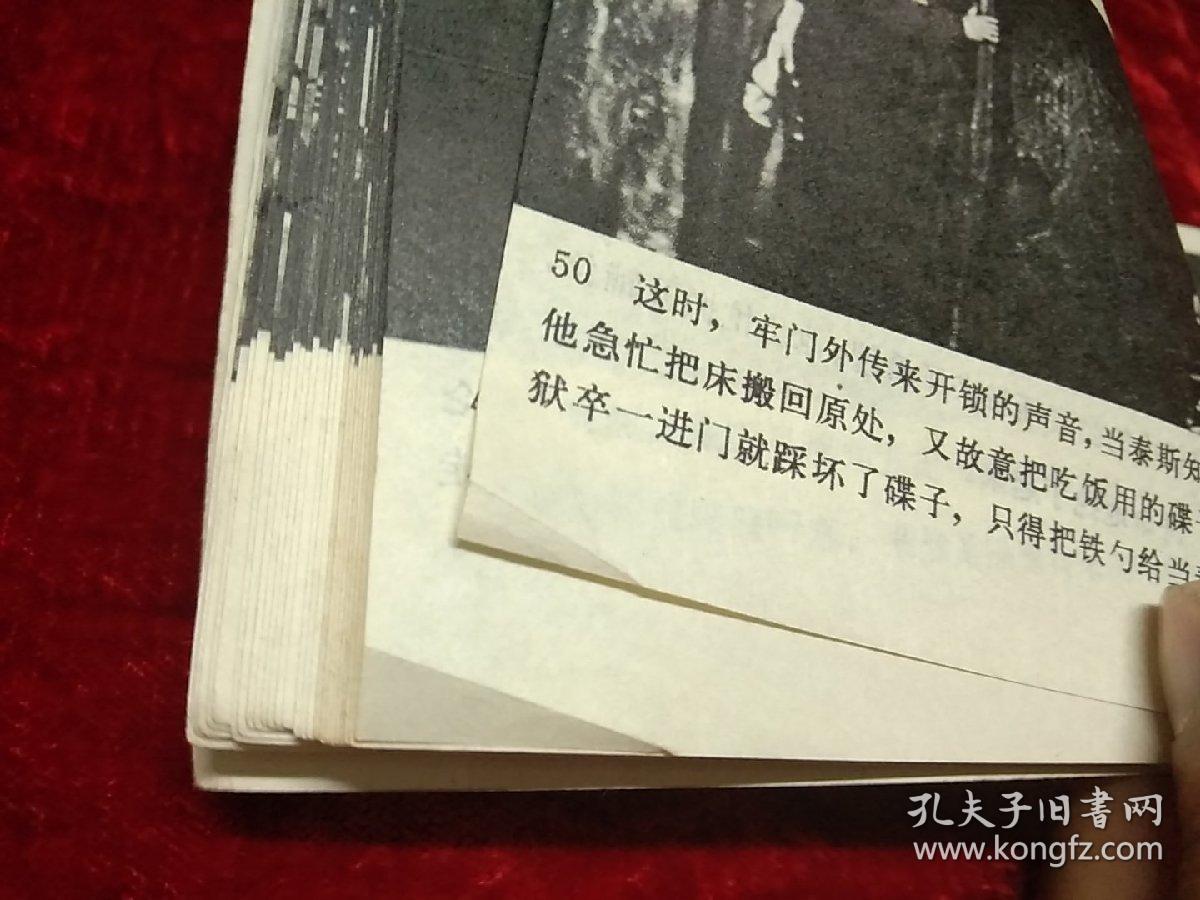 50 这时，牢门外传来开锁的声音，当泰斯知
他急忙把床搬回原处，又故意把吃饭用的碟
狱卒一进门就踩坏了碟子，只得把铁勺给当
孔夫子旧书网
www.kongfz.com